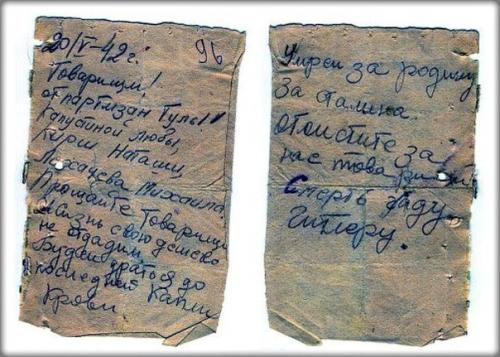 20/V-42г. 96
Товарищи!
от партизан Тулы!
Капустиной Любы,
Наташи,
Михаила,
Прощайте Товарищи
Жизнь свою дешево
не отдадим.
Будем драться до
последней Капли
Крови
Умрем за родину
За Сталина.
Отомстите за
нас товарищи
Смерть гаду
Гитлеру.